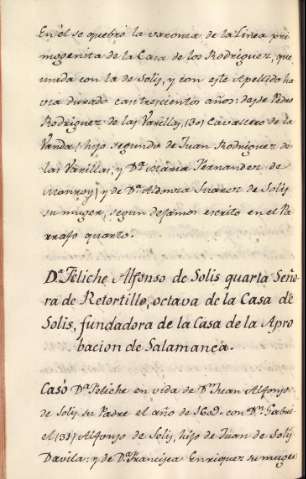 En él se quebró la varonia de la linea pri
mogenita de la Casa de los Rodriguez, que
unida con la de Solis, y con este Apellido ha
via durado cantrescientos años: desde Pedro
Rodriguez de las Varillas, (30) Cavallero de la
Vanda (hijo segundo de Juan Rodriguez de
las Varillas, y Dª. Maria Fernandez de
Monroy) y de Dª. Aldonza Suarez de Solis
su muger, segun dejamos escrito en el Pa
rrafo quarto.
Dª. Feliche Alfonso de Solis quarta Seño
ra de Retortillo, octava de la Casa de
Solis, fundadora de la Casa de la Apro
bacion de Salamanca.
Casó Dª. Feliche en vida de Dn. Juan Alfonso
de Solis su Padre el año de con Dn. Gabri
el (31) Alfonso de Solis, hijo de Juan de Solis
Davila: y de Dª. Francisca Enriquez su muger